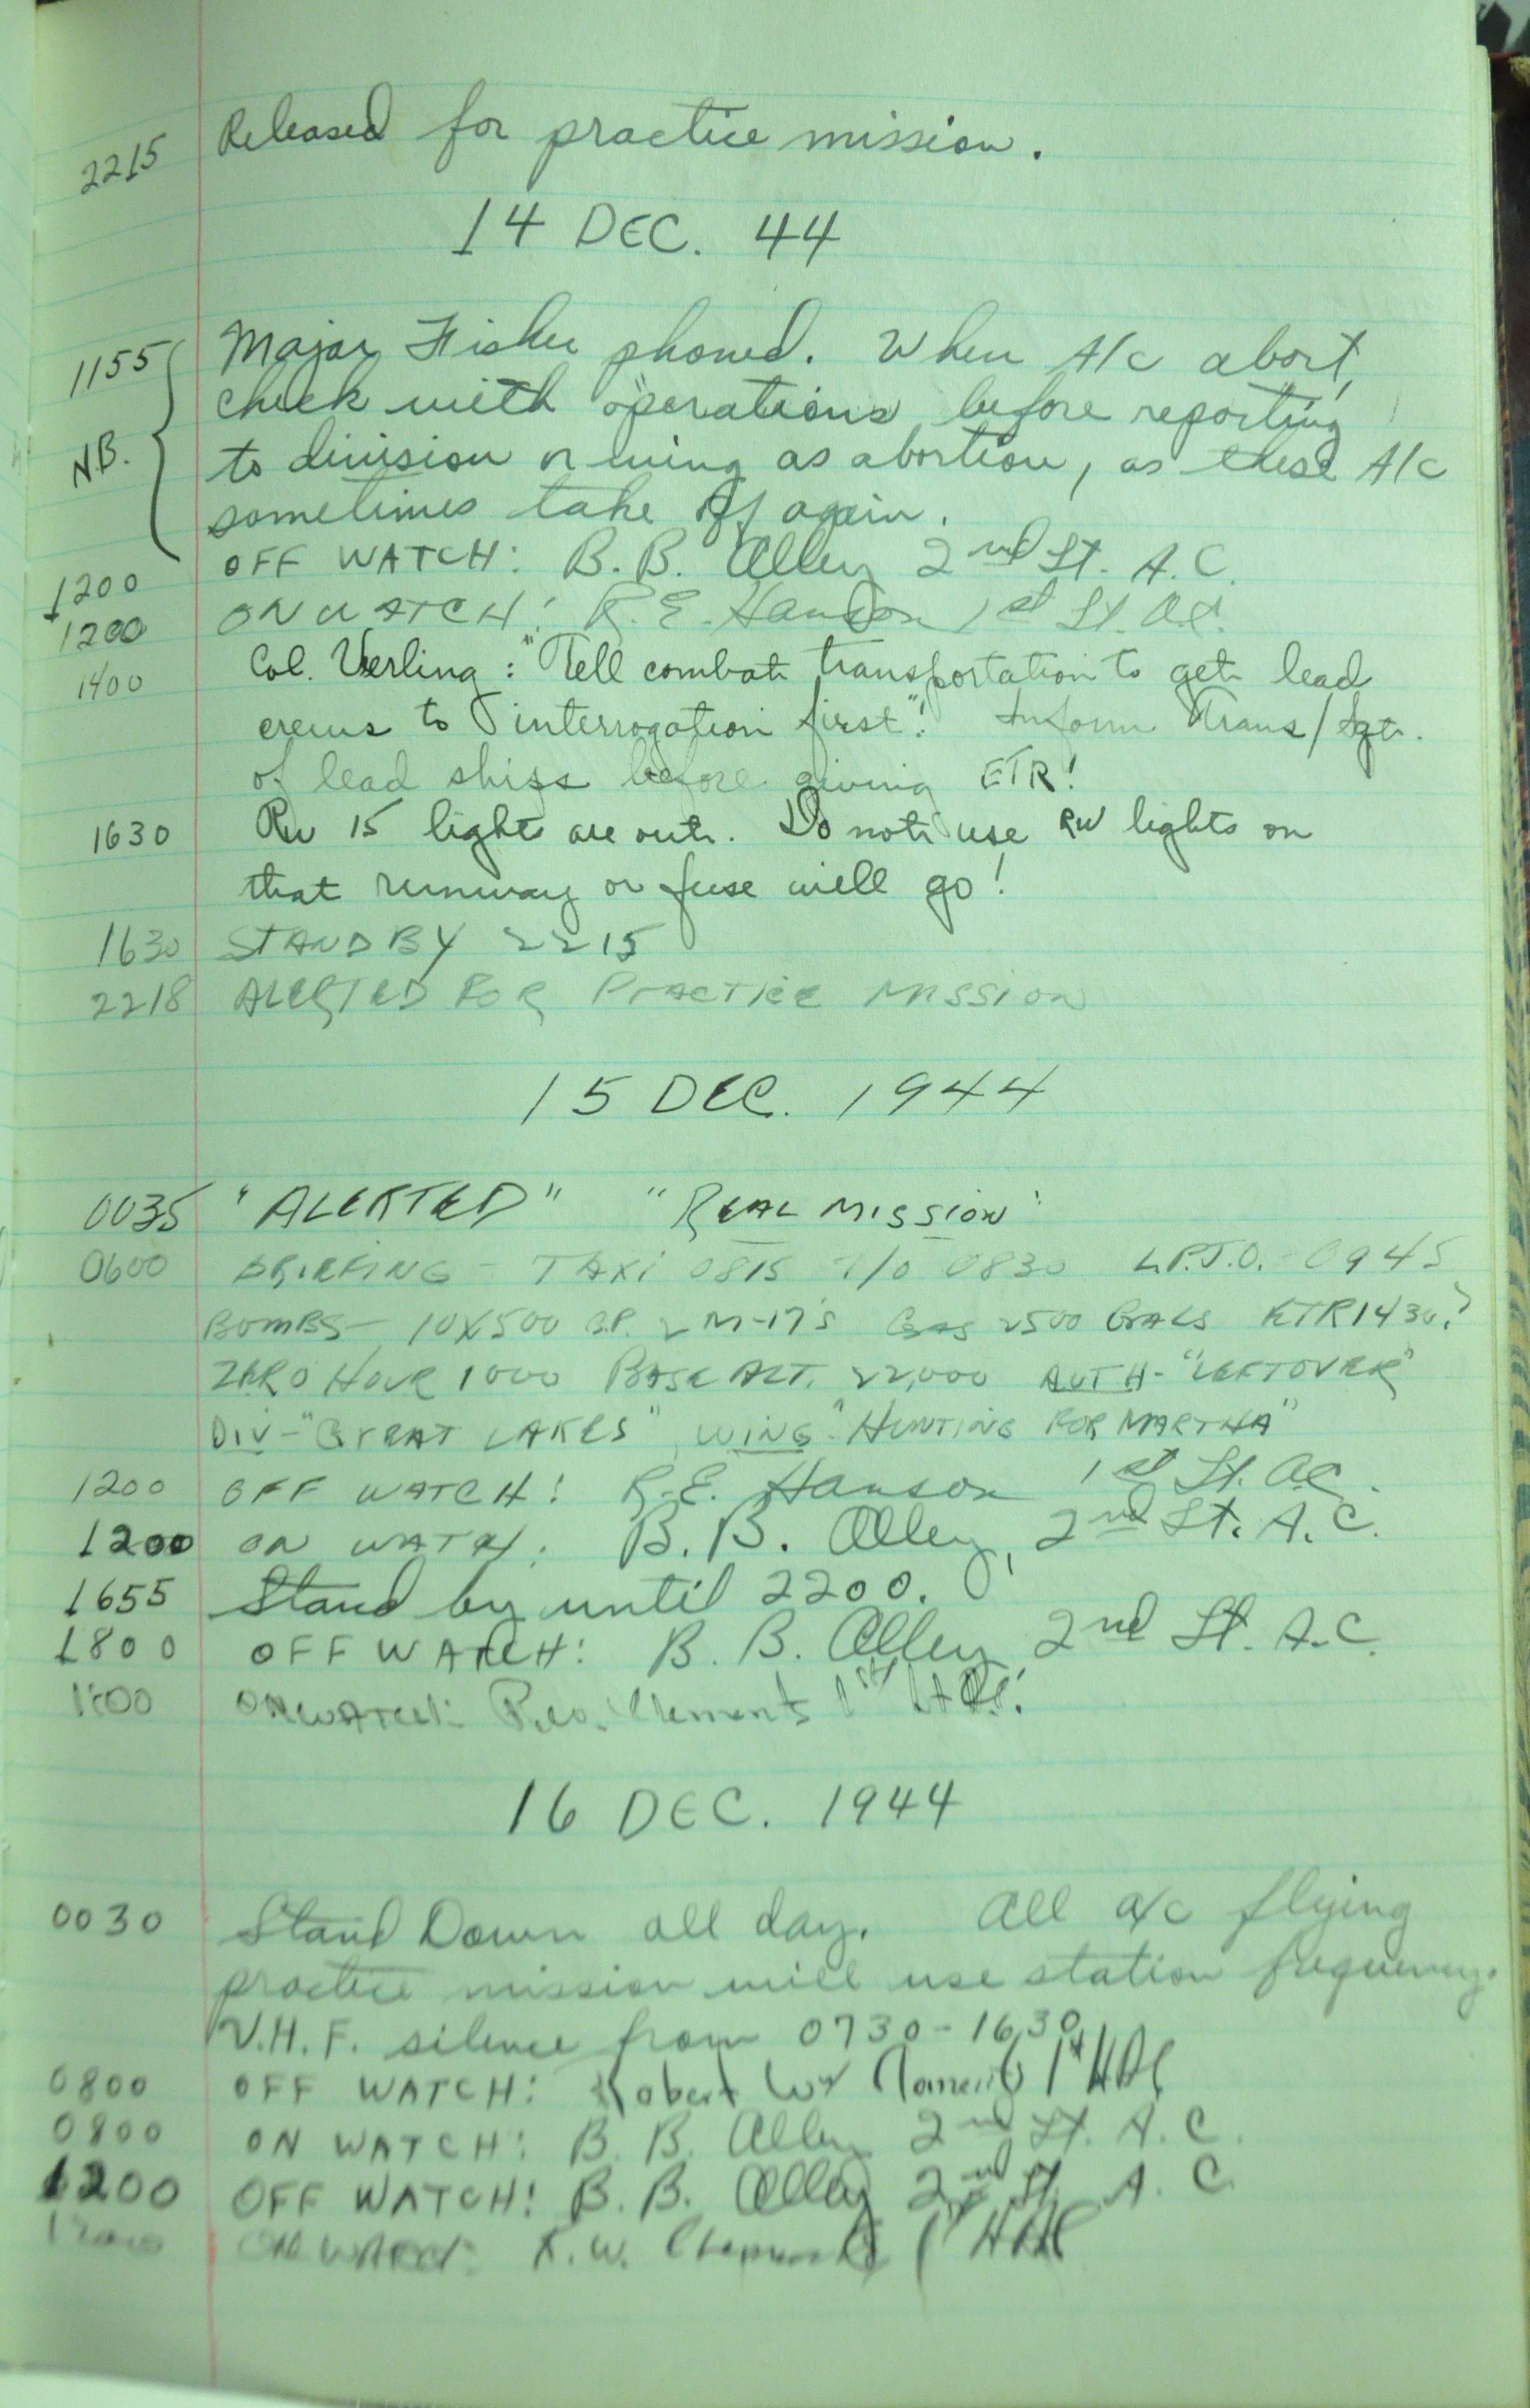 2215 Released for practice mission.
14 DEC. 44
1155 Major Fisher phoned. When A/c abort,
check with operations before reporting
N.B. to division or wing as abortion, as these A/c
sometimes take off again.
1200 OFF WATCH: B. B. Alley 2nd Lt. A.C.
1200 ON WATCH: R. E. Hanson 1st Lt. A.C.
1400 Col. Verling: "Tell combat transportation to get lead
crews to interrogation first"! Inform Trans/Sgt.
of lead ships before giving ETR!
1630 RW 15 lights are out. Do not use RW lights on
that runway or fuse will go!
1630 STAND BY 2215
2218 ALERTED FOR PRACTICE MISSION
15 DEC. 1944
0035 "ALERTED" "REAL MISSION"
0600 BRIEFING - TAXI 0815 T/O 0830 L.P.T.O. - 0945
BOMBS - 10X500 G.P. 2 M-17's GAS 2500 GALS ETR 1430?
ZERO HOUR 1000 BASE ALT. 22,000 AUTH - "LEFTOVER"
DIV - "GREAT LAKES", WING - "HUNTING FOR MARTHA"
1200 OFF WATCH: R. E. Hanson 1st Lt. A.C.
1200 ON WATCH: B. B. Alley, 2nd Lt. A.C.
1655 Stand by until 2200.
1800 OFF WATCH: B. B. Alley 2nd Lt. A.C.
ON WATCH: Clements 1st Lt AC.
16 DEC. 1944
0030 Stand Down all day. All a/c flying
practice mission will use station frequency.
V.H.F. silence from 0730-1630
0800 OFF WATCH: Robert W. Clements 1st Lt AC
0800 ON WATCH: B. B. Alley 2nd Lt. A.C.
1200 OFF WATCH: B. B. Alley 2nd Lt. A.C.
1200 ON WATCH: R. W. Clements 1st Lt AC